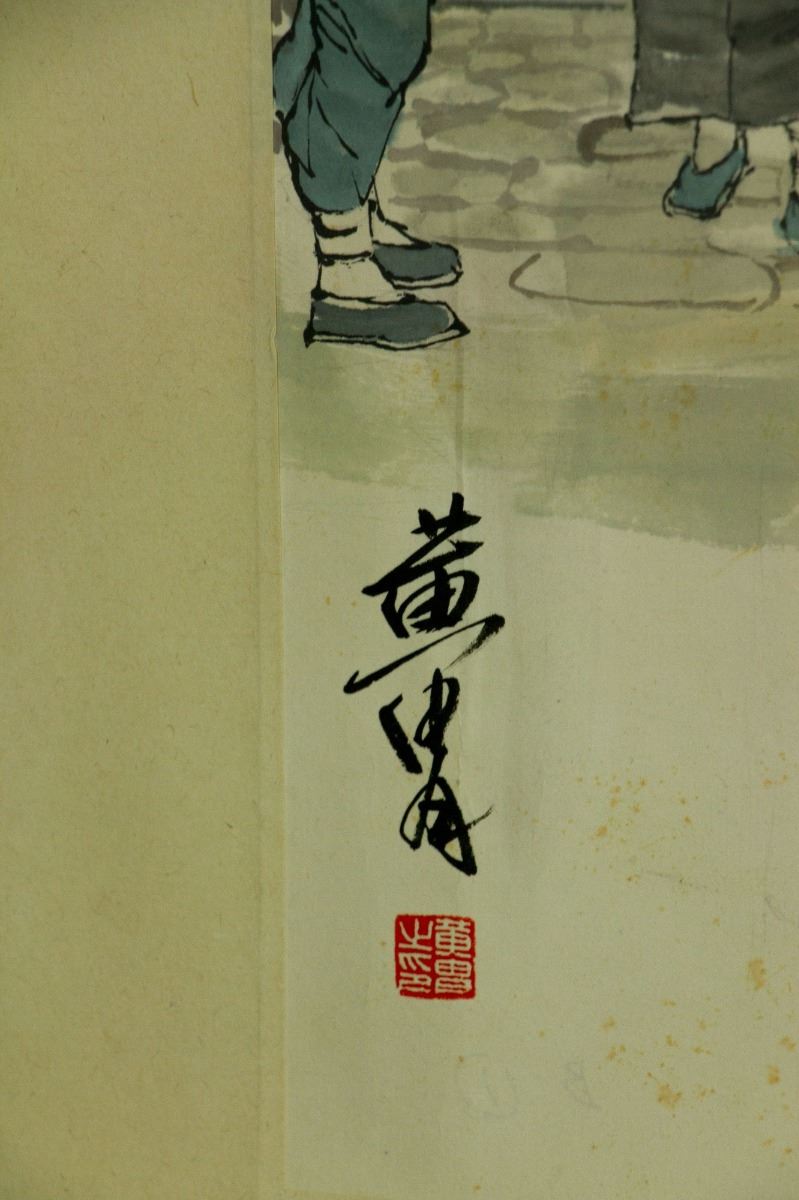 黄胄
黄胄之印